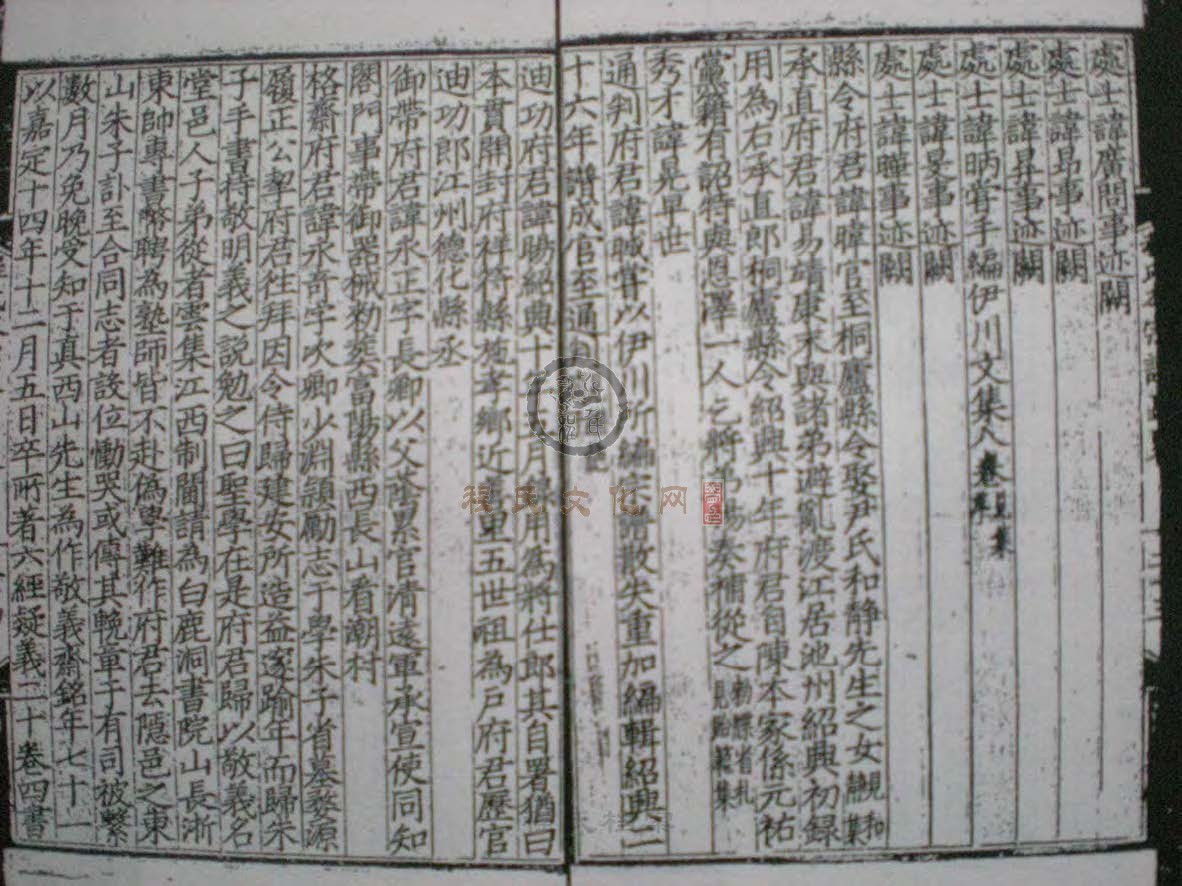 處士諱廣問事迹闕
處士諱昂事迹闕
處士諱昇事迹闕
處士諱昞嘗手編伊川文集八卷見集
處士諱旻事迹闕
處士諱曄事迹闕
縣令府君諱暐官至桐廬縣令娶尹氏和靜先生之女觀和集
承直府君諱易靖康末與諸弟避亂渡江居池州紹興初錄
用為右承直郎桐廬縣令紹興十年府君自陳本家係元祐
黨籍有詔特與恩澤一人乞將弟暘奏補從之勑牒省札見貽範集
秀才諱晃早世
通判府君諱晟嘗以伊川所編宗譜散失重加編輯紹興二
十六年譜成官至通判
迪功府君諱暘紹興十年 月錄用為將仕郎其自署猶曰
本貫開封府祥符縣 孝鄉近 里五世祖為戶府君歷官
迪功郎江州德化縣丞
御帶府君諱永正字長卿以父蔭累官清遠軍承宣使同知
閤門事帶御器械勑葬富陽縣西長山看潮村
格齋府君諱永奇字次卿少淵穎勵志于學朱子省墓婺源
履正公挈府君往拜因令侍歸建安所造益邃踰年而歸朱
子手書持敬明義之說勉之曰聖學在是府君歸以敬義名
堂邑人子弟從者雲集江西制閫請為白鹿洞書院山長浙
東帥專書幣聘為塾師皆不赴偽學難作府君去隱邑之東
山朱子訃至合同志者設位慟哭或傳其輓章于有司被繫
數月乃免晚受知于真西山先生為作敬義齋銘年七十一
以嘉定十四年十二月五日卒所著六經疑義二十卷四書
程氏文化网